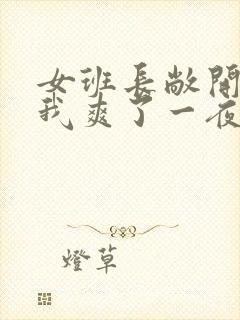 女班长敞開
我爽了一夜
燈草